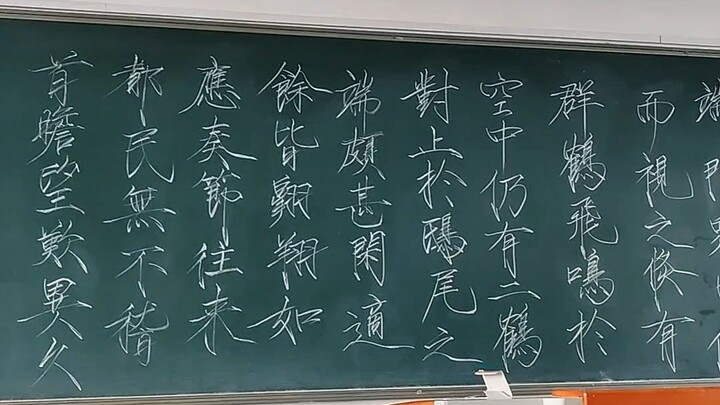 端門
而視之倏有
群鶴飛鳴於
空中仍有二鶴
對止於鴟尾之
端頗甚閑適
餘皆翱翔如
應奏節往来
都民無不稽
首瞻望歎異久